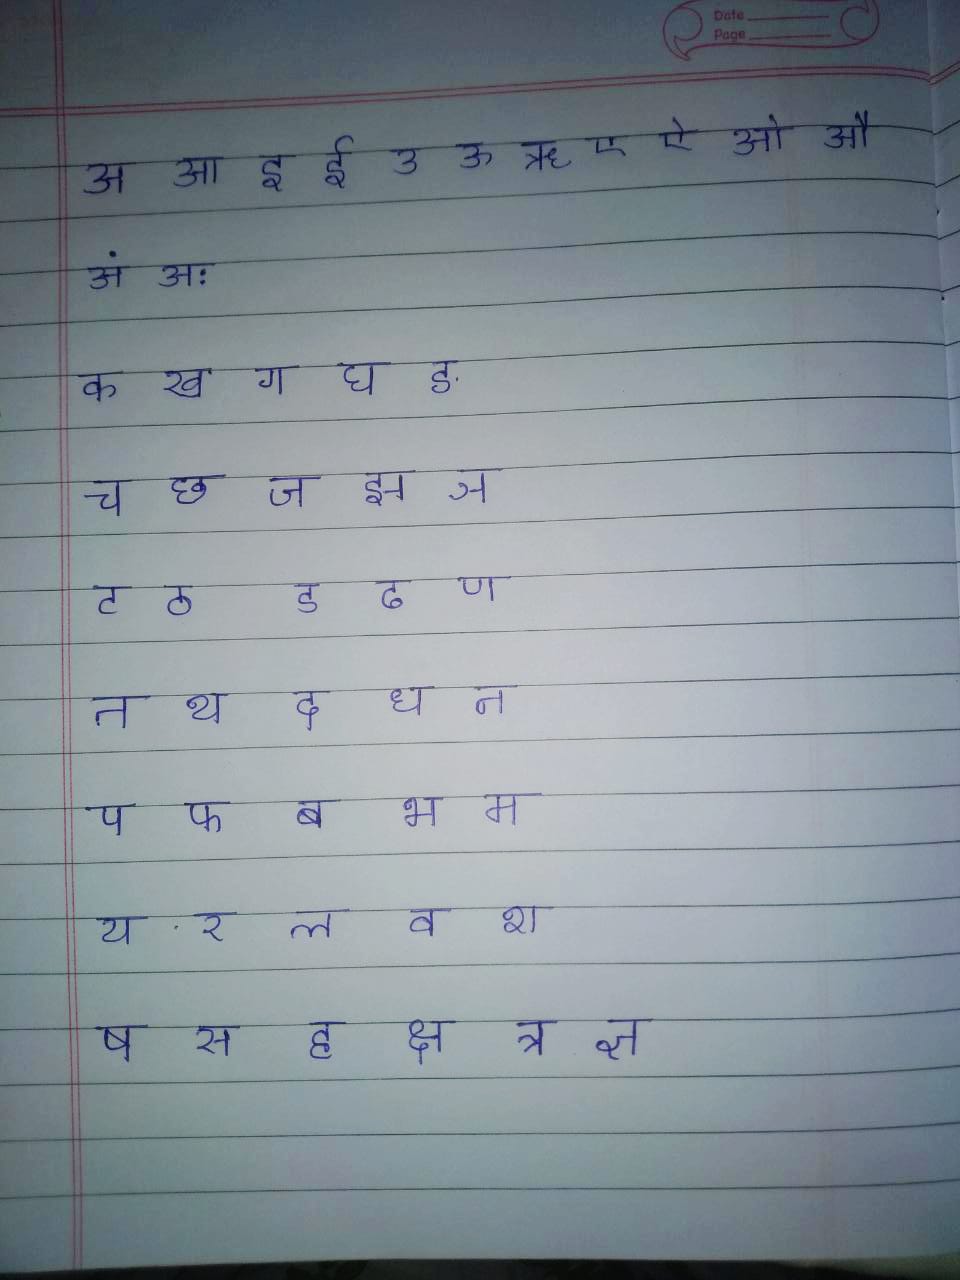 Date
Page
अ आ इ ई उ ऊ ऋ ए ऐ ओ औ
अं अः
क ख ग घ ङ
च छ ज झ ञ
ट ठ ड ढ ण
त थ द ध न
प फ ब भ म
य र ल व श
ष स ह क्ष त्र ज्ञ